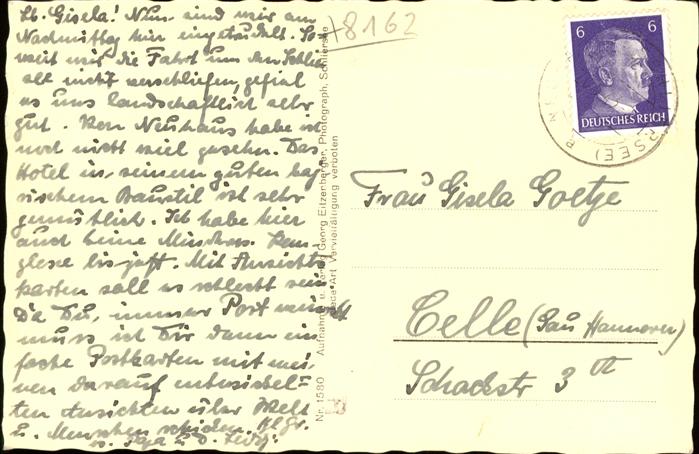 Lb. Gisela! Nun sind wir am
Nachmittag hier eingetrudelt. So-
weit wir die Fahrt um den Schlier
see nicht verschliefen, gefiel
es uns landschaftlich sehr
gut. Von Neuhaus habe ich
noch nicht viel gesehn. Das
Hotel in seinem guten bay
rischen Baustil ist sehr
gemütlich. Ich habe hier
auch keine
bis jetzt. Mit Ansichts
karten soll es schlecht sein.
Da Du, immer Post
muss ich Dir dann ein
fache Postkarten mit mei
nen darauf entwickel=
ten Ansichten über Welt
u. Menschen schicken. Hzl. Gr.
+8162
6 6
DEUTSCHES REICH
RSEE)
Nr. 1580 Aufnahme u. Georg Eitzenberger, Photograph, Schliersee
Art Vervielfältigung verboten
Frau Gisela Goetze
Celle (Gau Hannover)
Schackstr 3 II